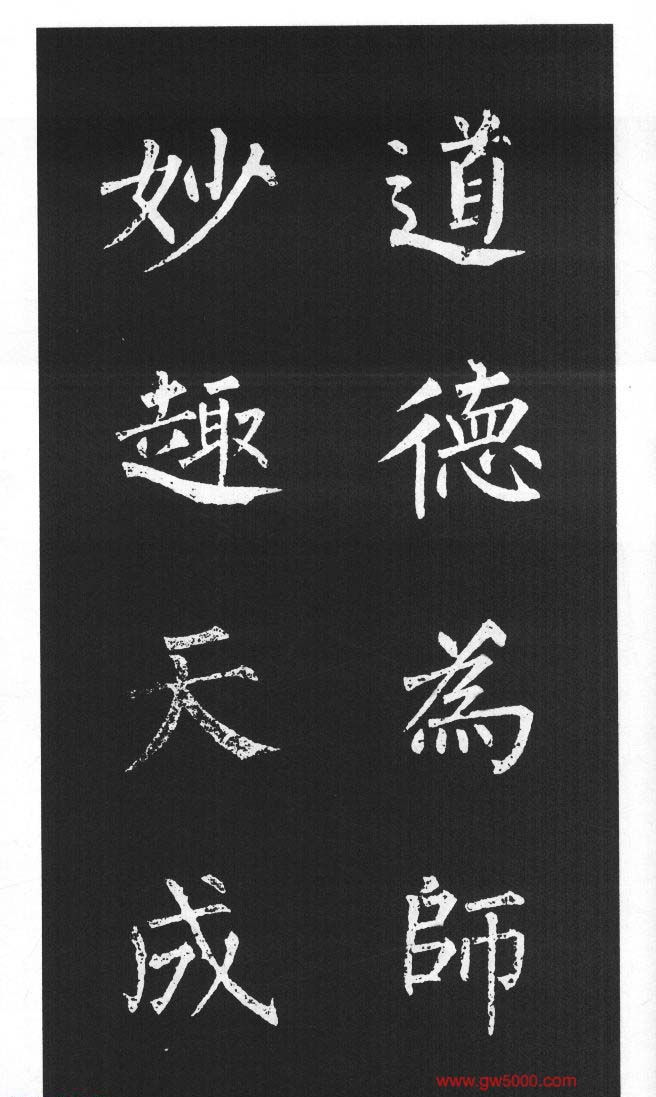 道德為師
妙趣天成
www.gw5000.com